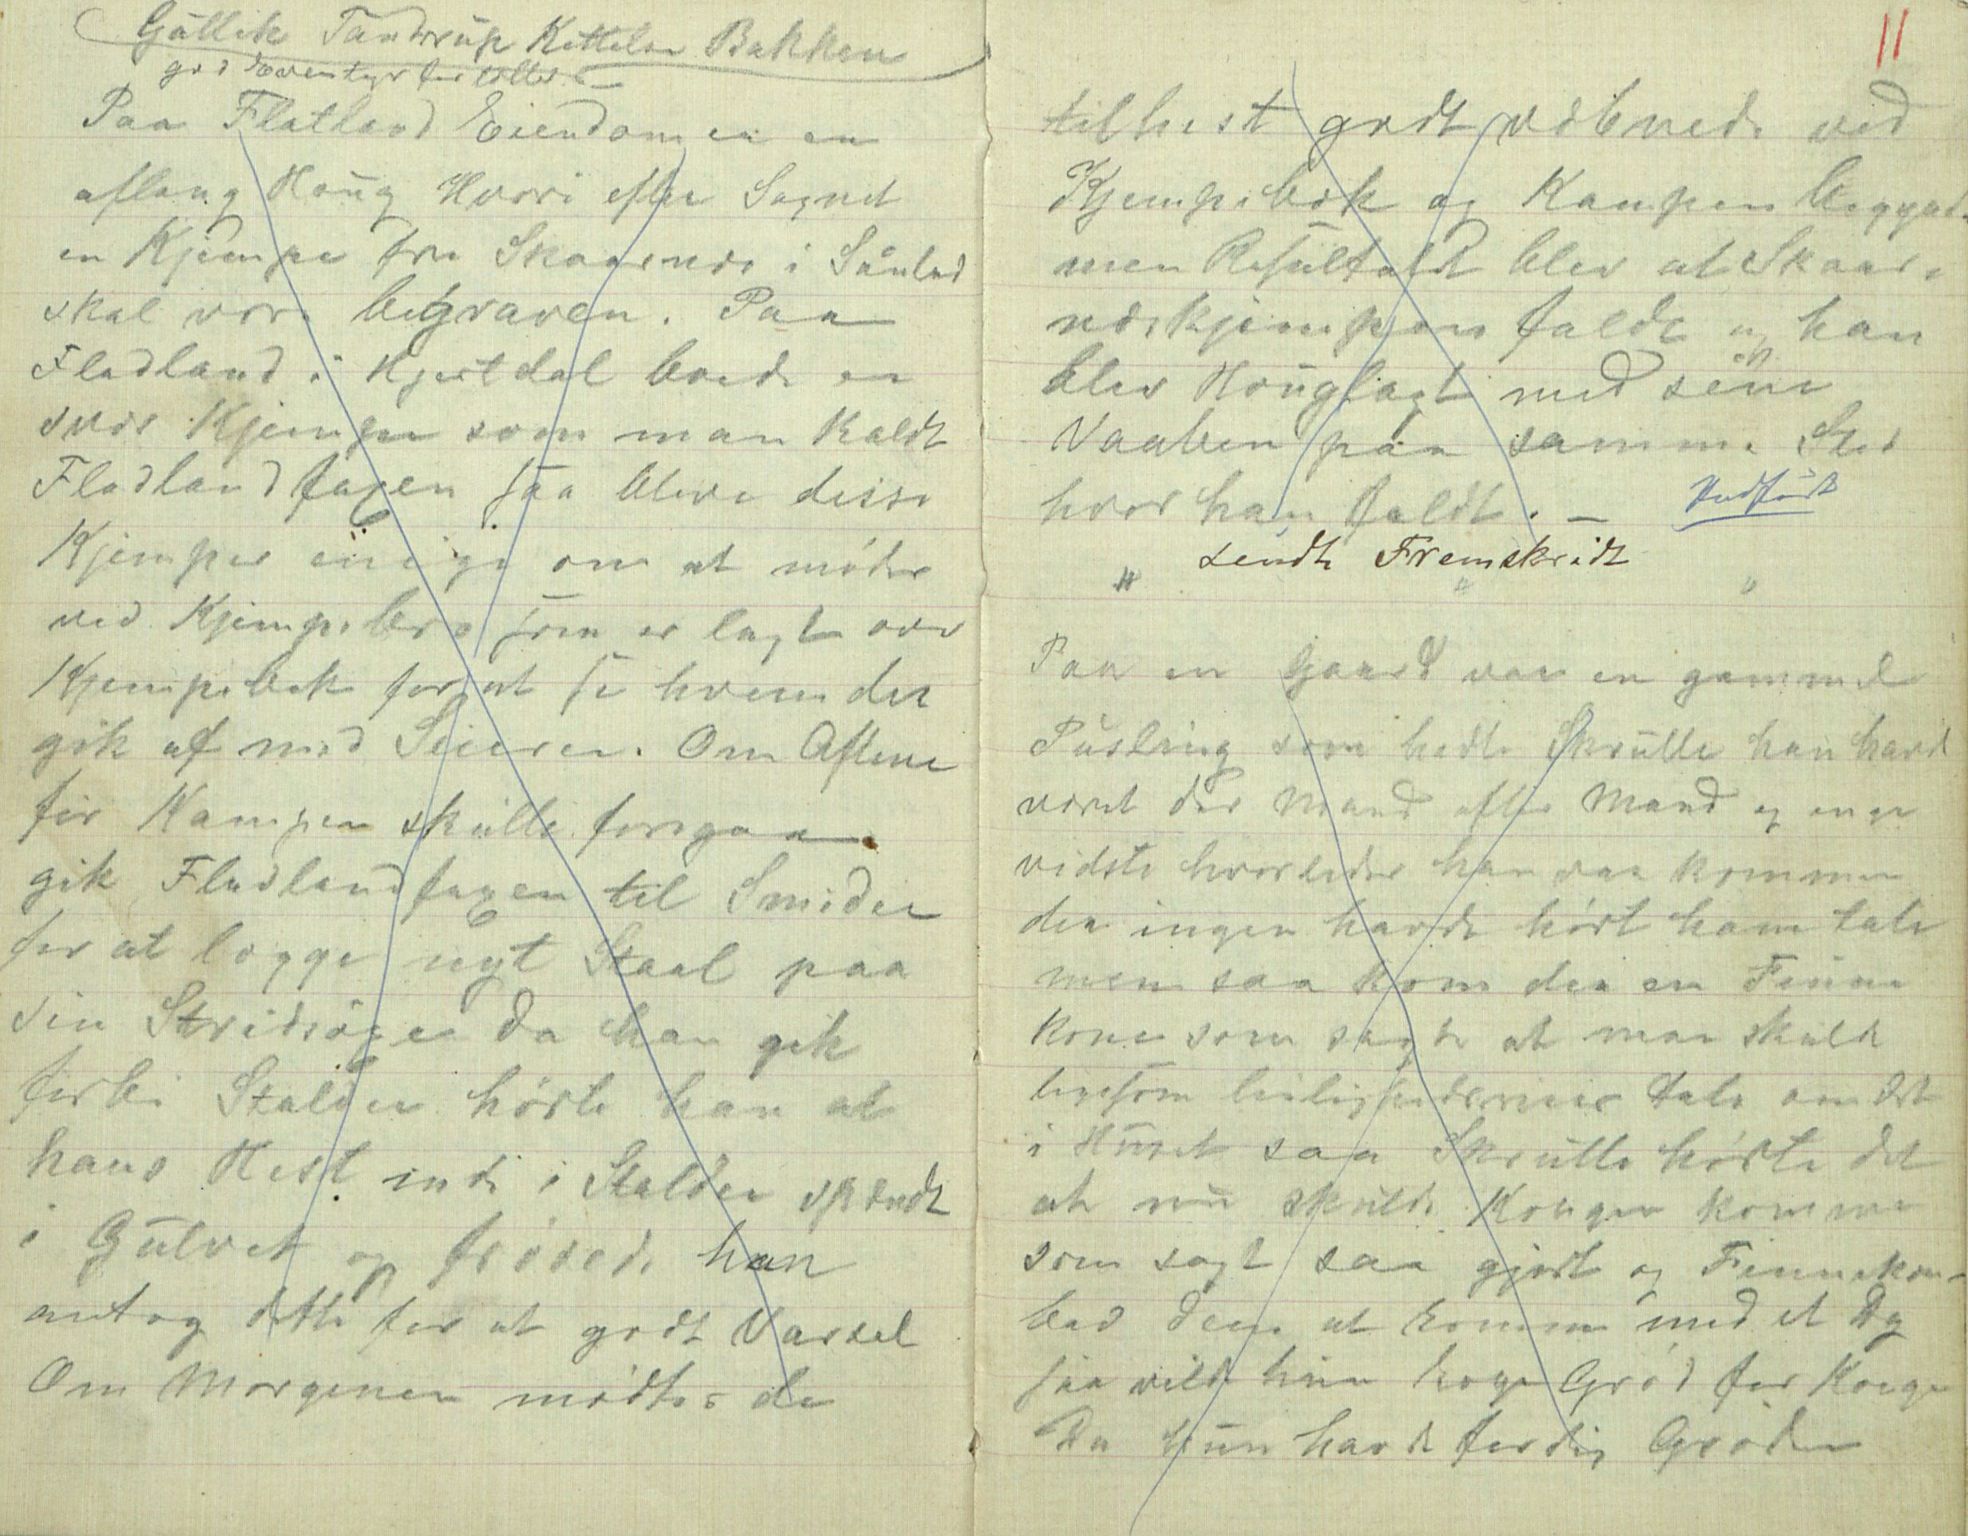 Gullik Tandrup Kittelsen Bakken
god Eventyrforteller
Paa Flatland Eiendom er en
aflang Houg Hvori efter Sagnet
en Kjempe fra Skaarnes i Sauland
skal være begraven. Paa
Fladland i Hjertdal boede en
svær Kjempe som man kaldt
Fladlandfaxen saa bleve disse
Kjemper einige om at møder
ved Kjempebro som er lagt over
Kjempebek for at se hvem der
gik af med Seieren. Om Aftene
før Kampen skulle foregaa
gik Fladlandfaxen til Smiden
for at lægge nyt Staal paa
sin Stridsøxe da han gik
forbi Stalden hørte han at
hans Hest inde i Stalden spændt
i Gulvet og frøsede han
antog dette for at godt Varsel
Om Morgenen mødtes de
11
tilhest godt væbnede ved
Kjempebæk og Kampen begynte
men Resultatet blev at Skaar-
næskjempen faldt og han
blev Houglagt med sine
Vaaben paa samme Sted
hvor han faldt. —
Indført
" sendt Fremskridt " "
Paa en Gaard var en gammel
Pusling som hedte Skrulle han havde
været der Mand efter Mand og inge
vidste hvorledes han var kommen
der ingen havde hørt ham tale
men saa kom der en Finne
kone som sagde at man skulde
ligesom tale om det
i Huset saa Skrulle hørte det
at nu skulde Kongen komme
som sagt saa gjort og Finnekonen
bad dem at komme med et Æg
saa vilde hun koge Grød for Kongen
Da hun havde ferdig Grøden